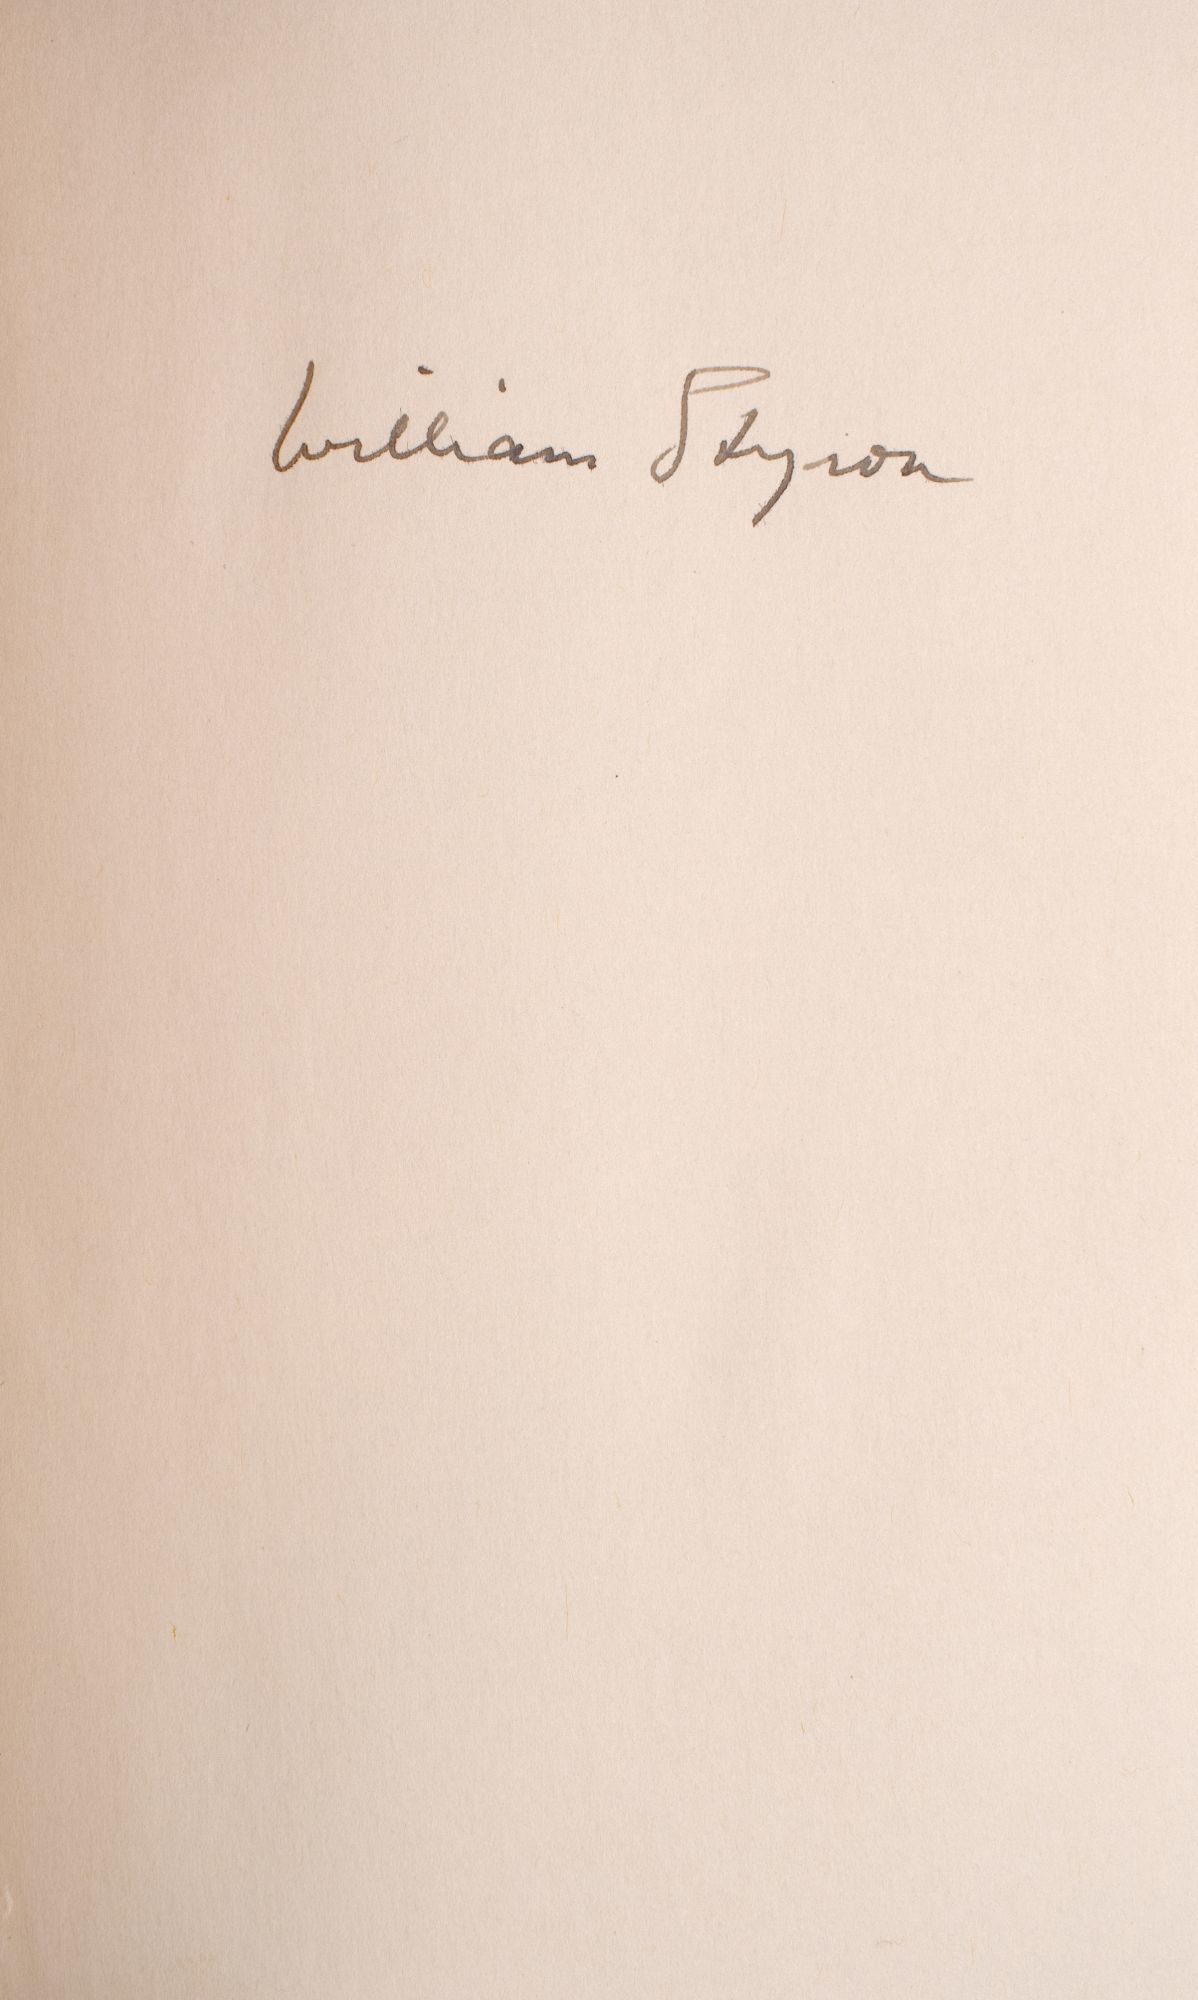 William Styron